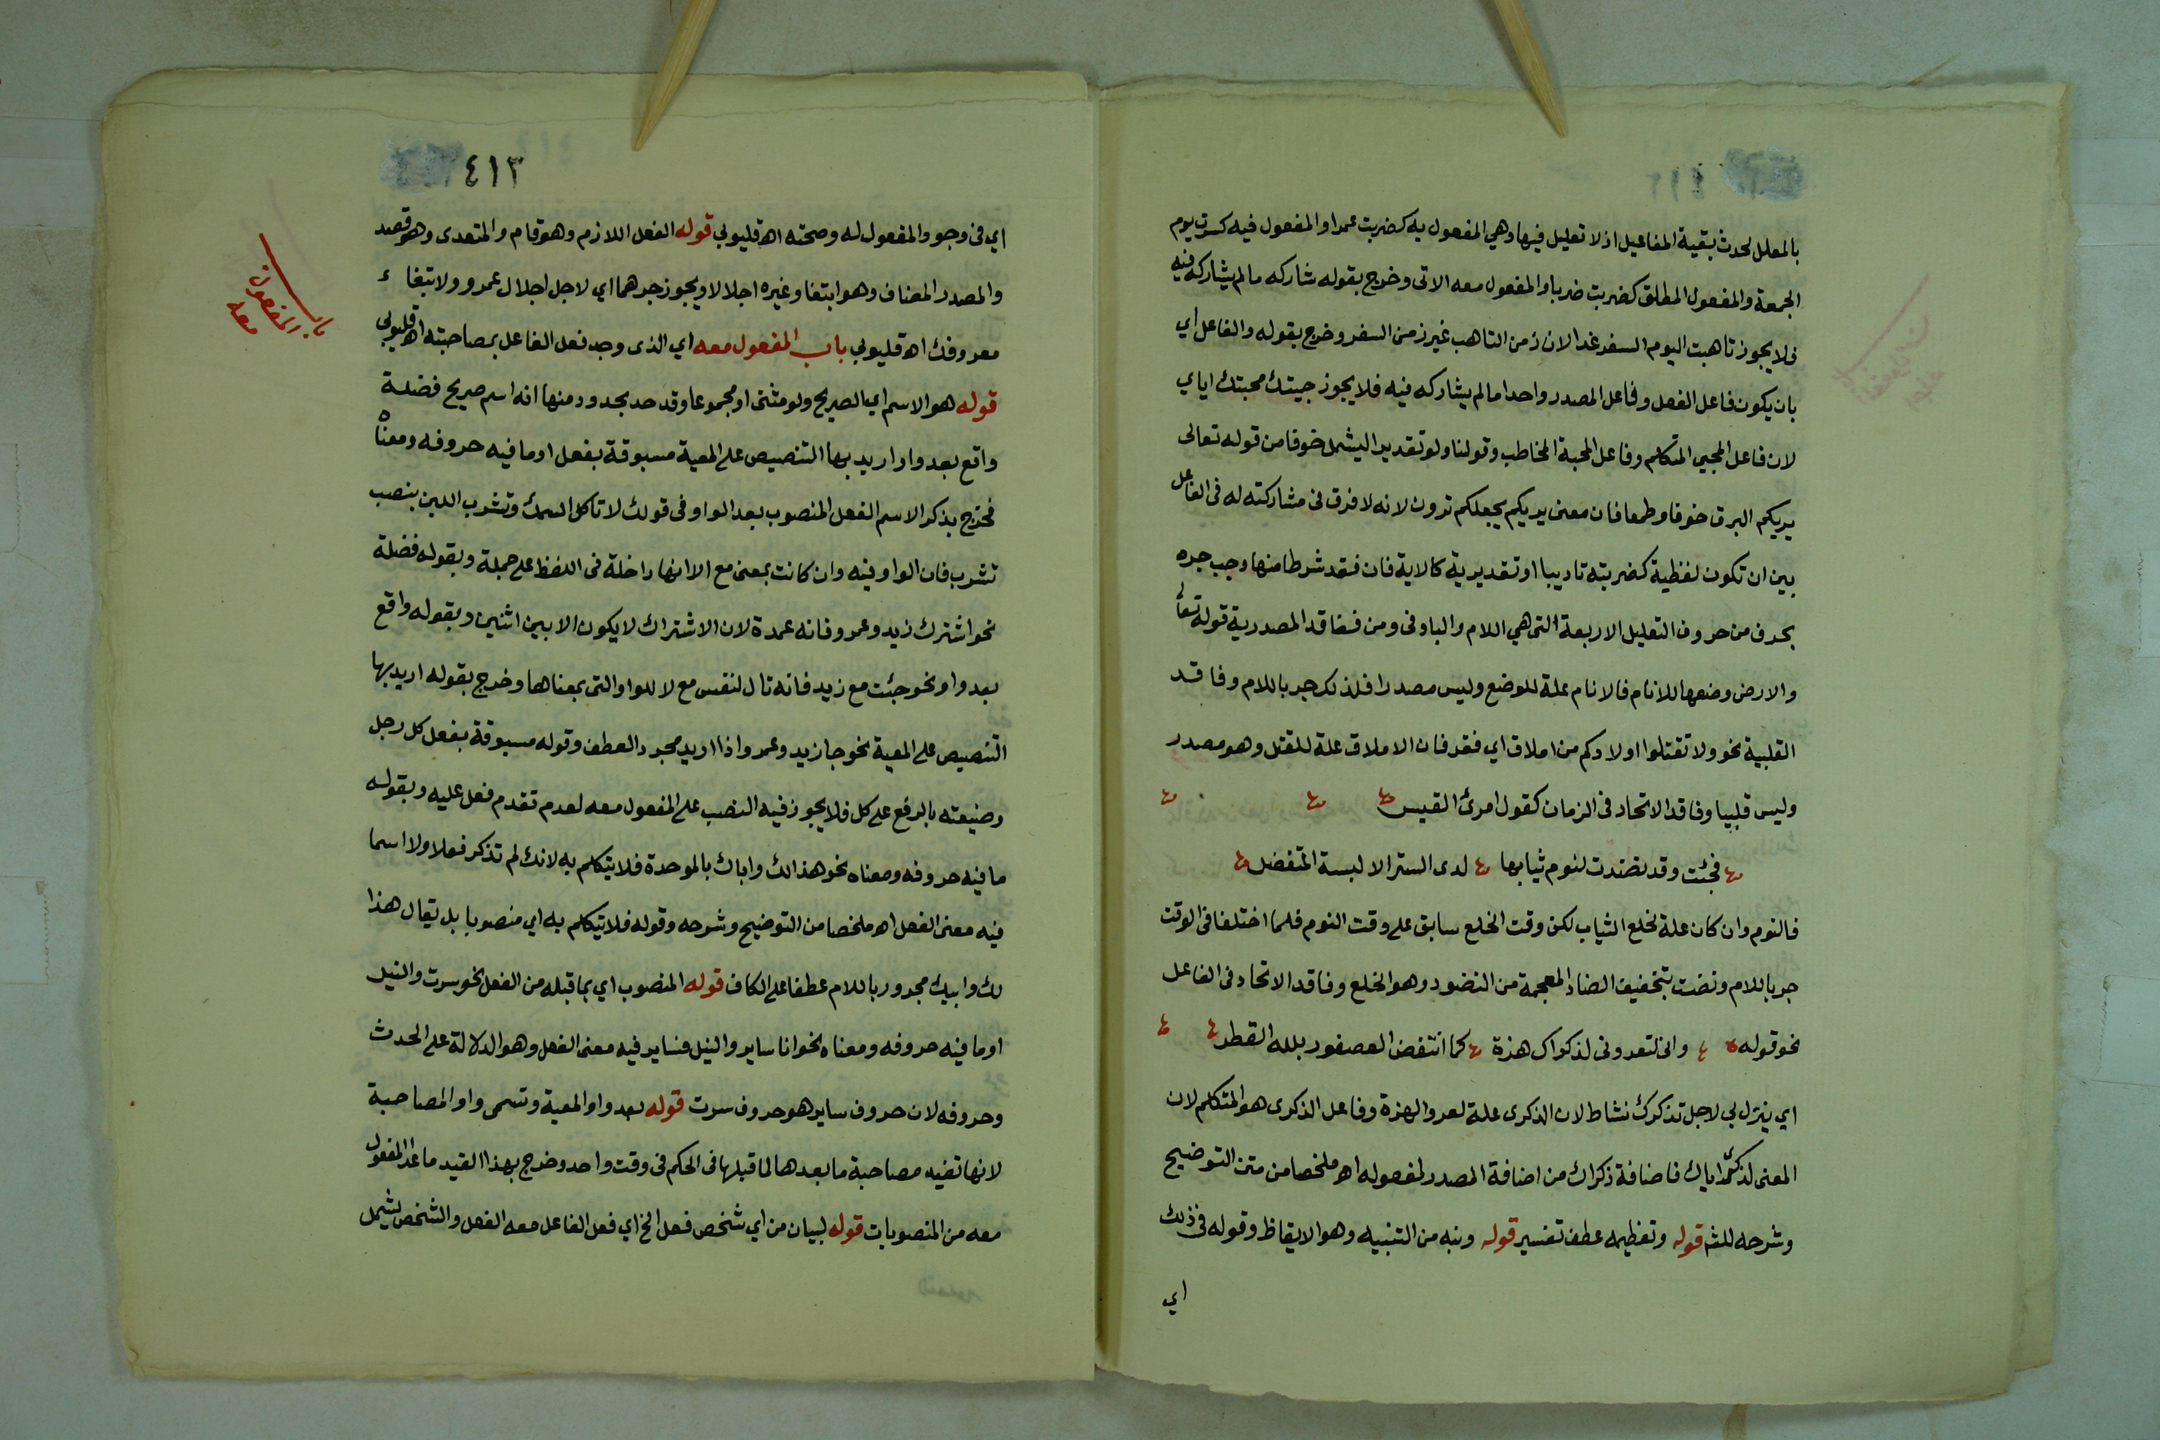 بالمعلل لحدث بقية المفاعيل اذ لا تعليل فيها وهي المفعول به كضربت عمرا والمفعول فيه كسرت يوم
الجمعة والمفعول المطلق كضربت ضربا والمفعول معه الاتى وخرج بقوله شاركه ما لم يشاركه فيه
فلا يجوز تاهبت اليوم السفر غدا لان زمن التاهب غير زمن السفر وخرج بقوله والفاعل اي
بان يكون فاعل الفعل وفاعل المصدر واحدا ما لم يشاركه فيه فلا يجوز جيتك محبتك اياي
لان فاعل المجيي المتكلم وفاعل المحبة المخاطب وقولنا ولو تقديرا ليشمل خوفا من قوله تعالى
يريكم البرق خوفا وطمعا فان معنى يريكم يجعلكم ترون لانه لا فرق فى مشاركته له فى الفاعل
بين ان تكون لفظية كضربته تاديبا او تقديرية كالاية فان فقد شرطا منها وجب جره
بحرف من حروف التعليل الاربعة التى هي اللام والبا وفى ومن ففاقد المصدرية قوله تعا
والارض وضعها للانام فالانام علة للوضع وليس مصدرا فلذلك جر باللام وفاقد
القلبية نحو ولا تقتلوا اولادكم من املاق اي فقر فان الاملاق علة للقتل وهو مصدر
وليس قلبيا وفاقد الاتحاد فى الزمان كقول امرئ القيس
فجئت وقد نضت لنوم ثيابها لدى الستر الا لبسة المتفضل
فالنوم وان كان علة لخلع الثياب لكن وقت الخلع سابق على وقت النوم فلما اختلفا فى الوقت
جر باللام ونضت بتخفيف الضاد المعجمة من النضو وهو الخلع وفاقد الاتحاد فى الفاعل
نحو قوله وانى لتعرونى لذكراك هزة كما انتفض العصفور بلله القطر
اي ينزل بي لاجل تذكرك نشاط لان الذكرى علة لعرو الهزة وفاعل الذكرى هو المتكلم لان
المعنى لذكرى اياك فاضافة ذكراك من اضافة المصدر لمفعوله اهـ ملخصا من متن التوضيح
وشرحه للشم قوله وتعظيمه عطف تفسير قوله ونبه من التنبيه وهو الايقاظ وقوله فى ذلك
اي
٤١٣
اي فى وجو والمفعول له وصحته اهـ قليوبي قوله الفعل اللازم وهو قام والمتعدى وهو قصد
والمصدر المضاف وهو ابتغا وغيره اجلالا ويجوز جرهما اي لاجل اجلال عمرو ولابتغاء
معروفك اهـ قليوبي باب المفعول معه اي الذى وجد فعل الفاعل بمصاحبته اهـ قليوبي
باب المفعول معه
قوله هو الاسم اي الصريح ولو مثنى او مجموعا وقد حد بحدود منها انه اسم صريح فضلة
واقع بعد واو اريد بها التنصيص على المعية مسبوقة بفعل او ما فيه حروفه ومعناه
فخرج بذكر الاسم الفعل المنصوب بعد الواو فى قولك لا تاكل السمك وتشرب اللبن بنصب
تشرب فان الواو فيه وان كانت بمعنى مع الا انها داخلة فى اللفظ على جملة وبقوله فضلة
نحو اشترك زيد وعمرو فانه عمدة لان الاشتراك لا يكون الا بين اثنين وبقوله واقع
بعد واو نحو جئت مع زيد فانه تال لنفس مع لا للواو التى بمعناها وخرج بقوله اريد بها
التنصيص على المعية نحو جا زيد وعمرو اذا اريد مجرد العطف وقوله مسبوقة بفعل كل رجل
وضيعته بالرفع على كل فلا يجوز فيه النصب على المفعول معه لعدم تقدم فعل عليه وبقوله
ما فيه حروفه ومعناه نحو هذا لك واباك بالموحدة فلا يتكلم به لانك لم تذكر فعلا ولا اسما
فيه معنى الفعل اهـ ملخصا من التوضيح وشرحه وقوله فلا يتكلم به اي منصوبا بل يقال هذا
لك وابيك مجرور باللام عطفا على الكاف قوله المنصوب اي بما قبله من الفعل نحو سرت والنيل
او ما فيه حروفه ومعناه نحو انا ساير والنيل فساير فيه معنى الفعل وهو الدلالة على الحدث
وحروفه لان حروف ساير هو حروف سرت قوله بعد واو المعية وتسمى واو المصاحبة
لانها تفيد مصاحبة ما بعدها لما قبلها فى الحكم فى وقت واحد وخرج بهذا القيد ما عدا المفعول
معه من المنصوبات قوله لبيان من اي شخص فعل الخ اي فعل الفاعل معه الفعل والشخص يشمل